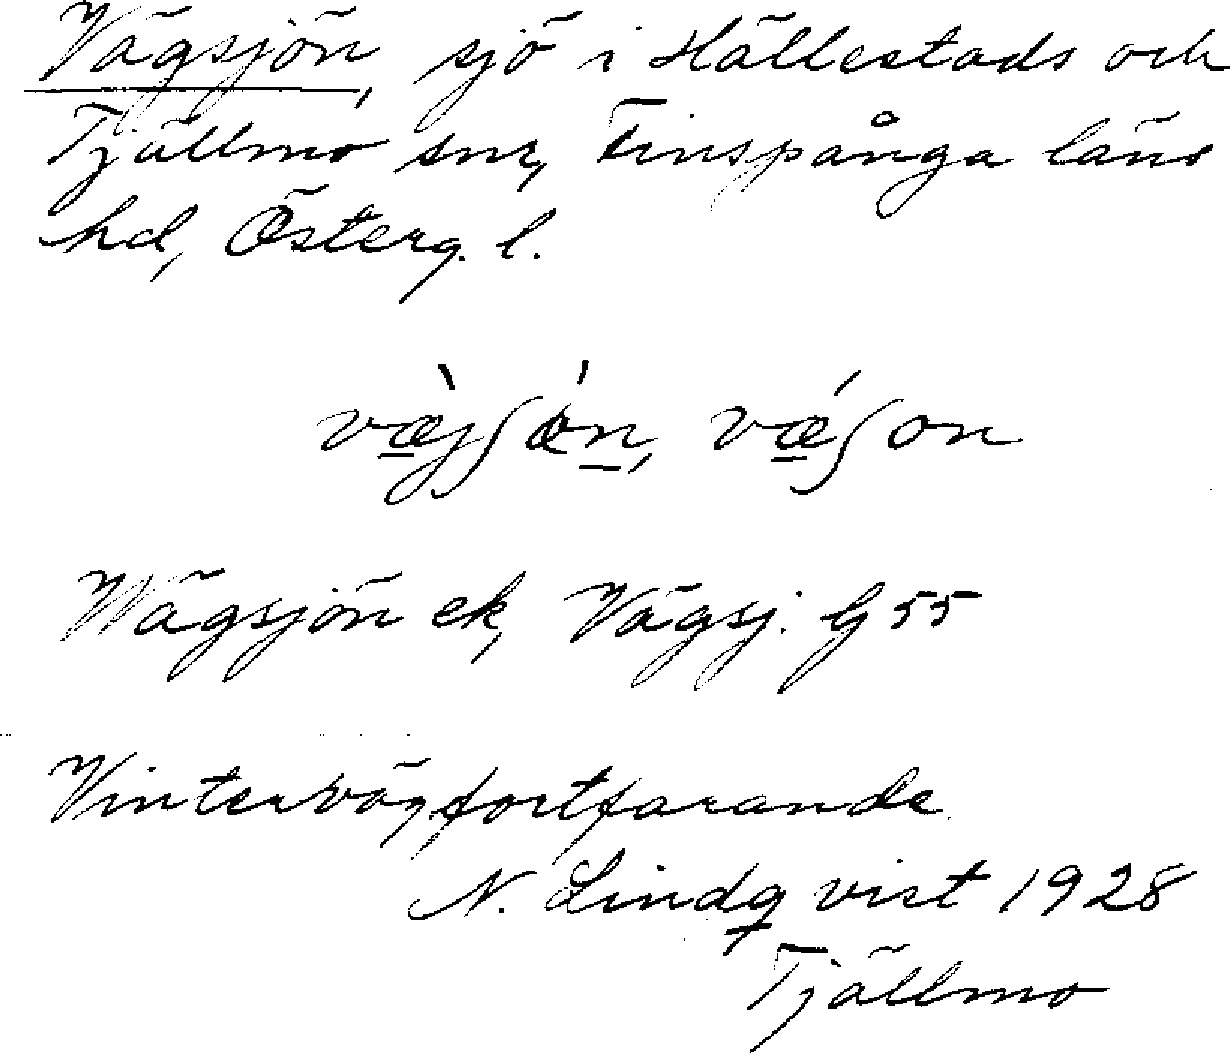 Vägsjön, sjö i Hällestads och
Tjällmo snr, Finspånga läns
hd, Österg. l.
væ̀jʃòn, vǽʃon
Wägsjön ek, Vägsj. G 55
Vinterväg fortfarande.
N. Lindqvist 1928
Tjällmo